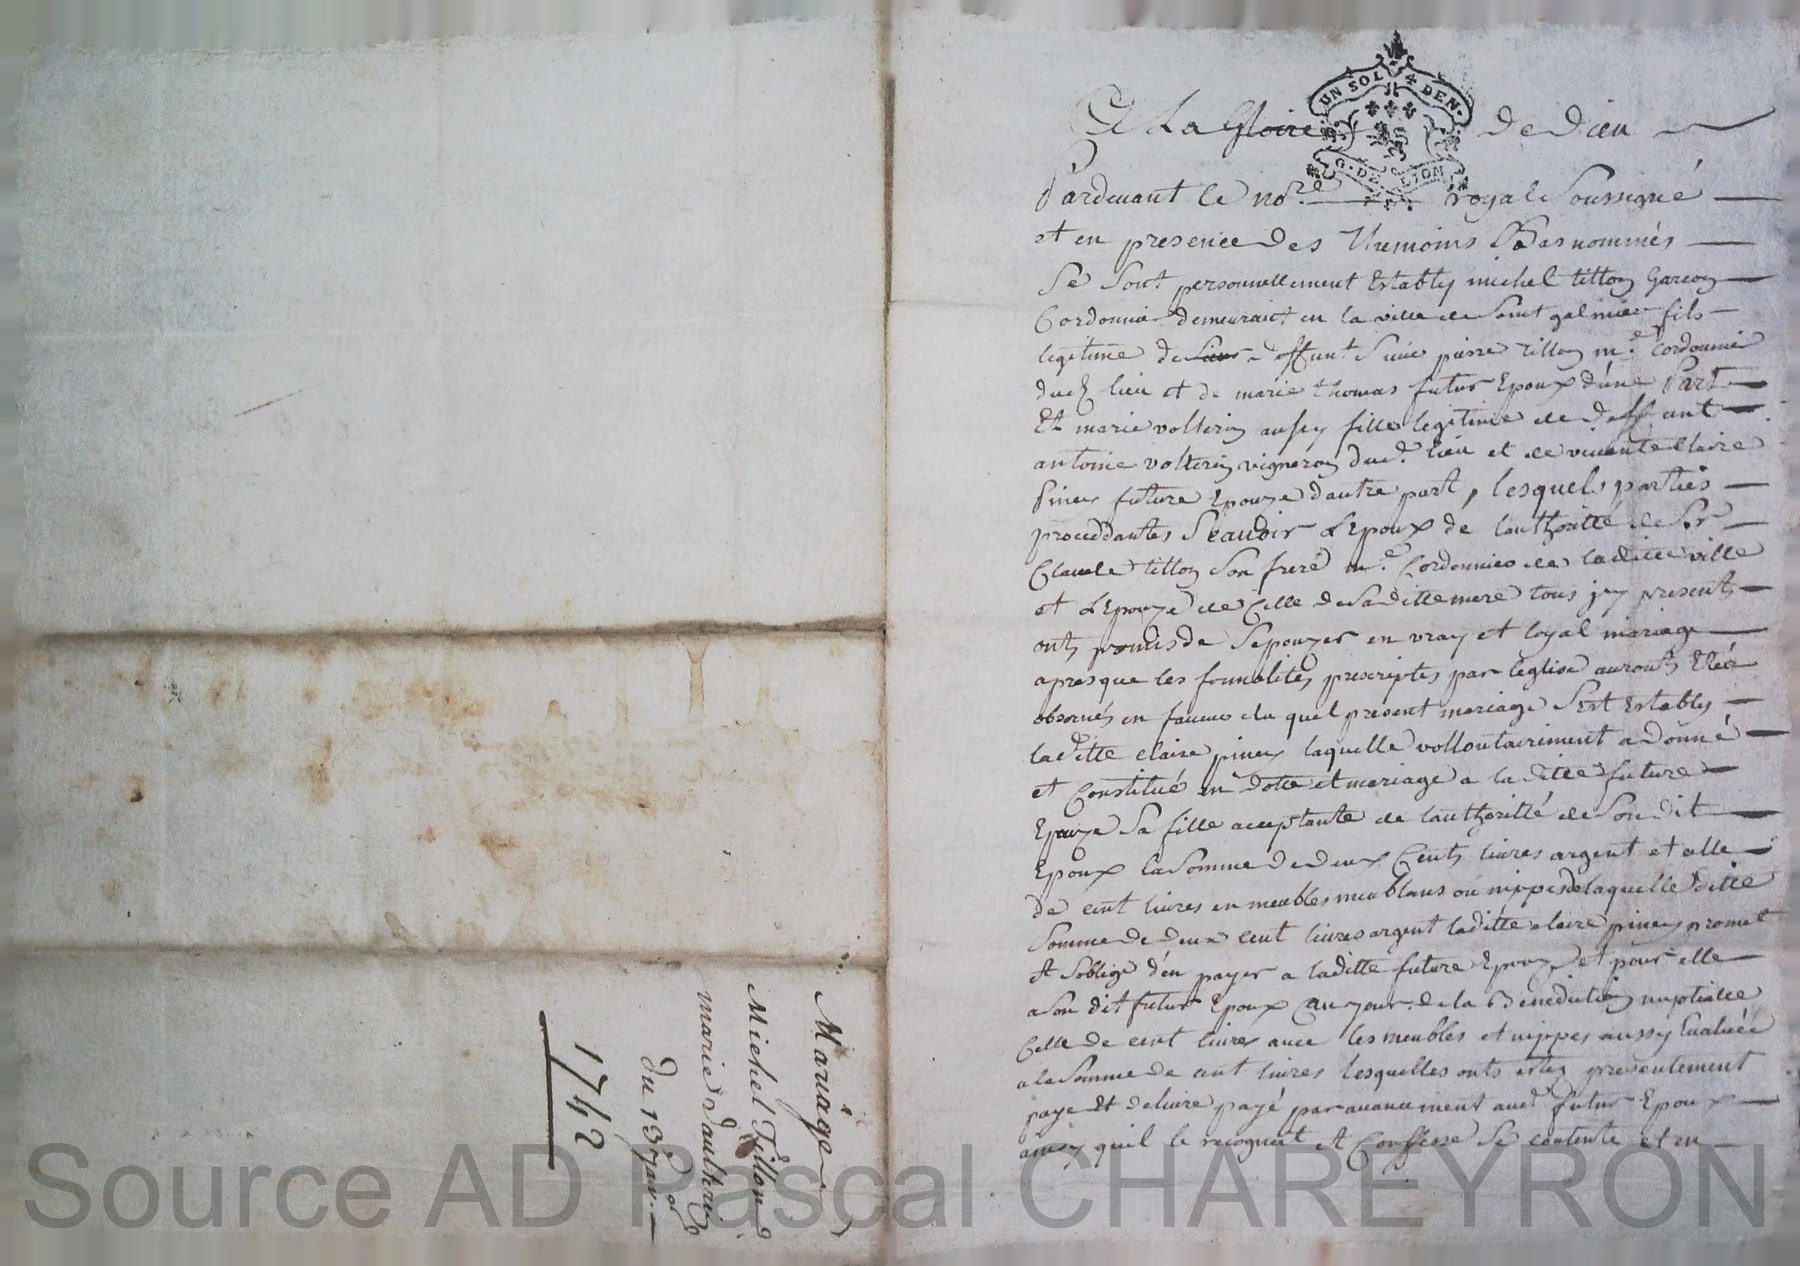 Mariage
Michel Tillon &
marie Vaultrin
du 13 janv.
1742
UN SOL 4 DEN.
G. DE LION
A La Gloire de Dieu
Pardevant le no.re royal Soussigné
et en presence Des Themoins Bas nommés
Se Sont personnellement Estably michel tillon Garcon
Cordonnier demeurant en la ville de Saint galmier fils
legitime de deffunt Sieur pierre tillon m.e Cordonnier
dud lieu et de marie thomas futur Epoux d'une Part
Et marie volterin aussy fille legitime de deffunt
antoine volterin vigneron dud. lieu et de vivante Claire
Piney future Epouze d'autre part, lesquels parties
proceddantes Scauoir L'Epoux de l'authoritté de Sr
Claude tillon Son frere m.e Cordonnier de laditte ville
et L'Epouze de Celle de Saditte mere tous jcy presents
onts promis de Sepouzer en vray et loyal mariage
apres que les formalités prescriptes par leglise auronts Etés
observés en faveur du quel present mariage S'est Establys
laditte claire piney laquelle vollontairement a donné
et Constitué en Dotte et mariage a la ditte future
Epouze Sa fille acceptante de l'authoritté de Son dit
Epoux la Somme de deux Cents livres argent et celle
de cent livres en meubles meublans ou nippes de laquelle ditte
Somme de deux cent livres argent laditte claire piney promet
et Soblige d'en payer a laditte future Epouze et pour elle
a Son dit futur Epoux au jour de la Benediction nuptialle
Celle de cent livres avec les meubles et nippes aussy Evaluée
a la Somme de cent livres lesquelles onts estez presentement
paye et delivre payé par avancement aud. futur Epoux
ainsy quil le recognoit et Confesse Se contente et en
Source AD Pascal CHAREYRON